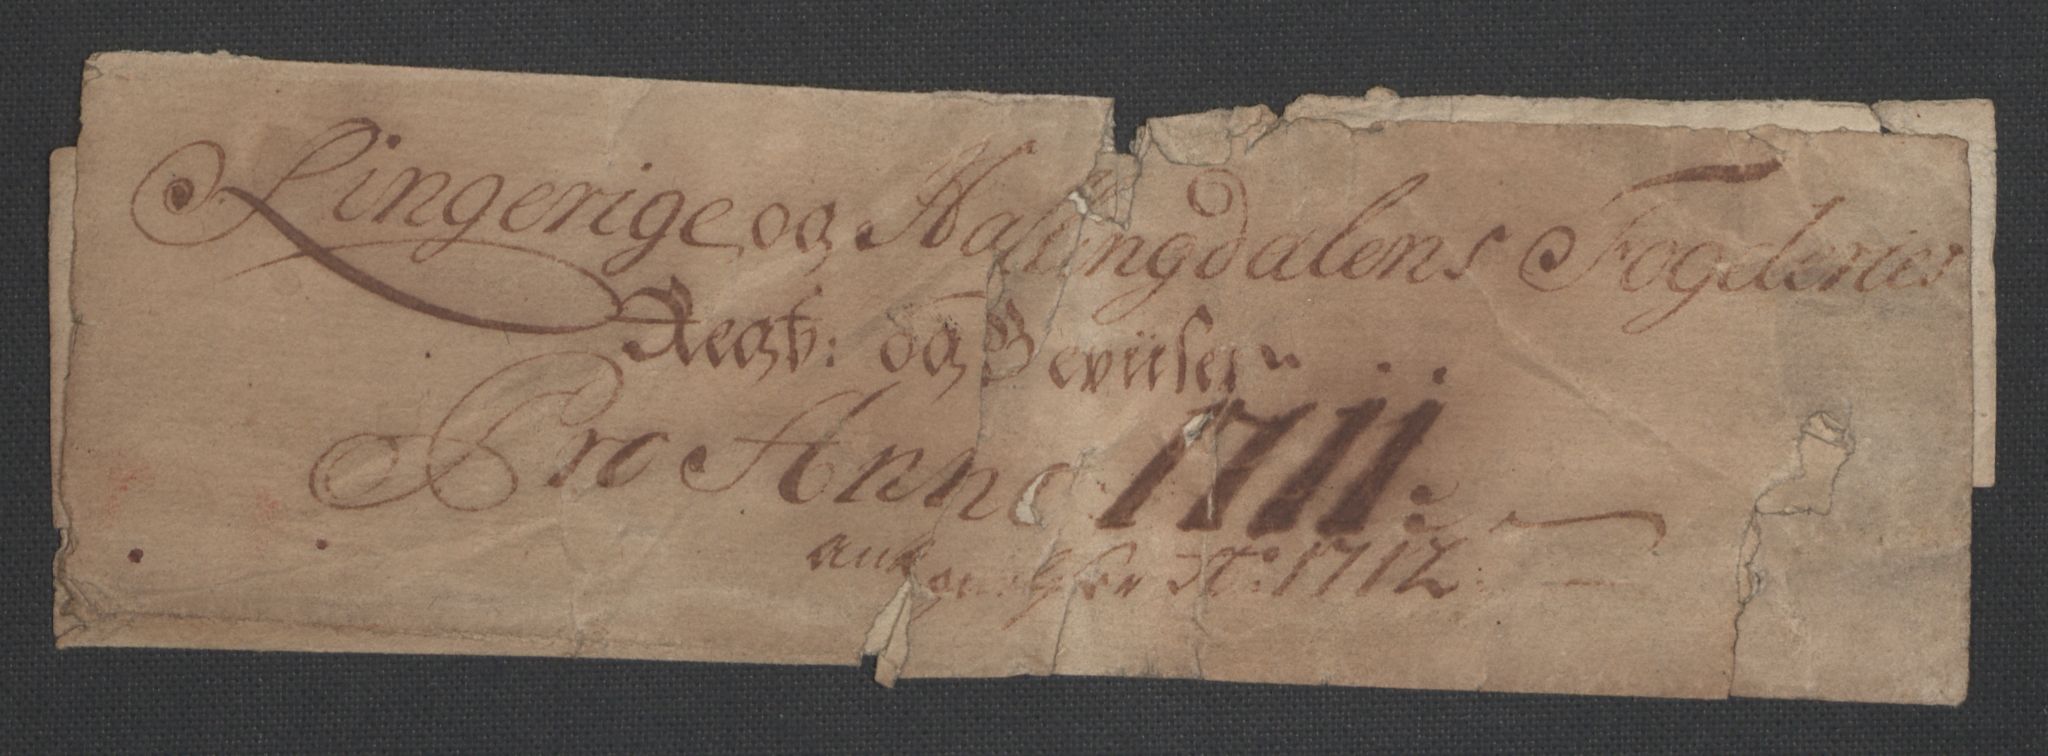 Ringerige og Hallingdalens Fogderies
Regb: og Beviiser
Pro Anno 1711.
Ao: 1712